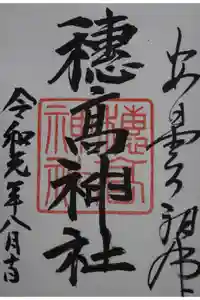 安曇野朝拝
穂高神社
令和元年八月十吉
穂高神社